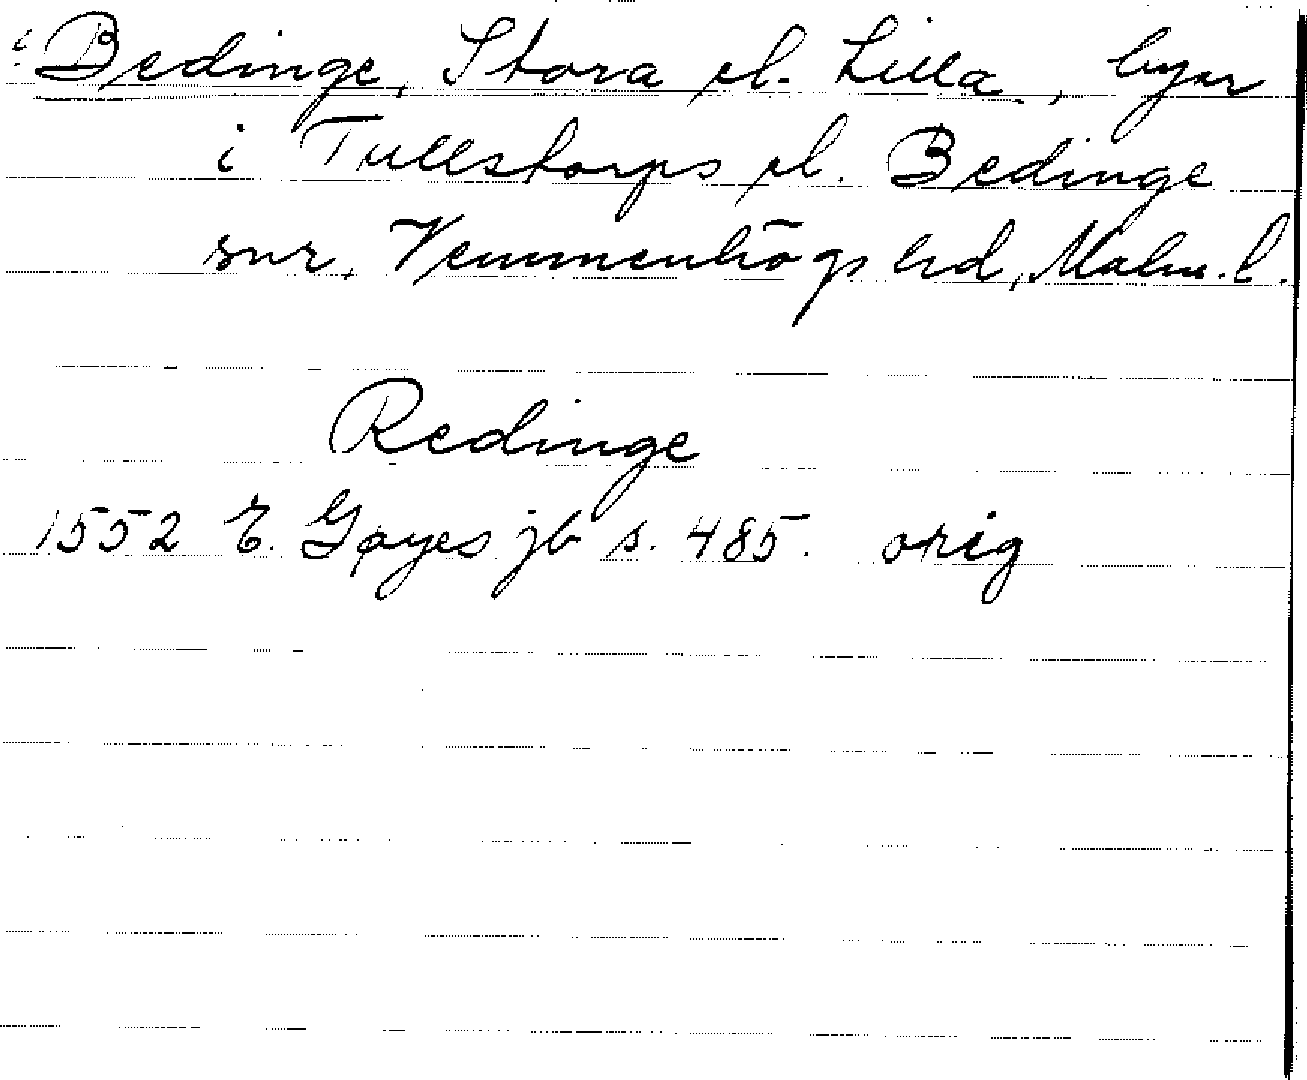 Bedinge, Stora el. Lilla, byar
i Tullstorps el. Bedinge
snr, Vemmenhögs hd, Malm. l.
Redinge
1552 E. Gøyes jb s. 485. orig